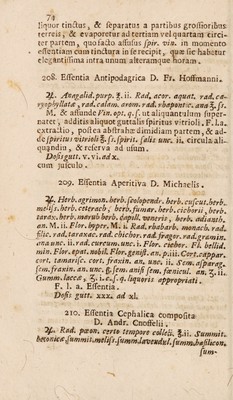 74
liquor tinctus, & separatus a partibus grossioribus
terreis, & evaporetur ad tertiam vel quartam circi-
ter partem, quo facto affusus spir. vin. in momento
essentiam cum tinctura in se recipit, quæ sic habetur
elegantissima intra unum alteramque horam.
208. Essentia Antipodagrica D. Fr. Hoffmanni.
℞. Anagalid. purp. ʒ. ii. Rad. acor. aquat. rad. ca-
ryophyllatæ, rad. calam. arom. rad. rhapontic. ana ʒ. ss.
M. & affunde Vin. opt. q. s. ut aliquantulum super-
natet, additis aliquot guttulis spiritus vitrioli. F. l. a.
extractio, postea abstrahe dimidiam partem, & ad-
de spiritus vitrioli ʒ. ss. spirit. salis unc. ii. circula ali-
quandiu, & reserva ad usum.
Dosis gutt. v. vi. ad x.
cum jusculo.
209. Essentia Aperitiva D. Michaelis.
℞. Herb. agrimon. herb. scolopendr. herb. cuscut. herb.
meliss. herb. ceterach, herb. fumar. herb. cichorii, herb.
tarax. herb. marub. herb. capill. veneris, herb. adianth.
an. M. ii. Flor. hyper. M. i. Rad. rhabarb. monach. rad.
filic. rad. taraxac. rad. cichor. rad. fragor. rad. gramin.
ana unc. ii. rad. curcum. unc. i. Flor. cothor. Fl. bellid.
min. Flor. epat. nobil. Flor. genist. an. p. iii. Cort. cappar.
cort. tamarisc. cort. fraxin. an. unc. ii. Sem. asparag.
sem. fraxin. an. unc. ß. sem. anisi sem. fœnicul. an. ʒ. ii.
Gumm. laccæ, ʒ. i. c. s. q. liquoris appropriati.
F. l. a. Essentia.
Dosis gutt. xxx. ad xl.
210. Essentia Cephalica composita
D. Andr. Cnoffelii.
℞. Rad. pæon. certo tempore collect. ʒ. ii. Summit.
betonicæ, summit. meliss. summ. lavendul. summ. basilicon.
sum-